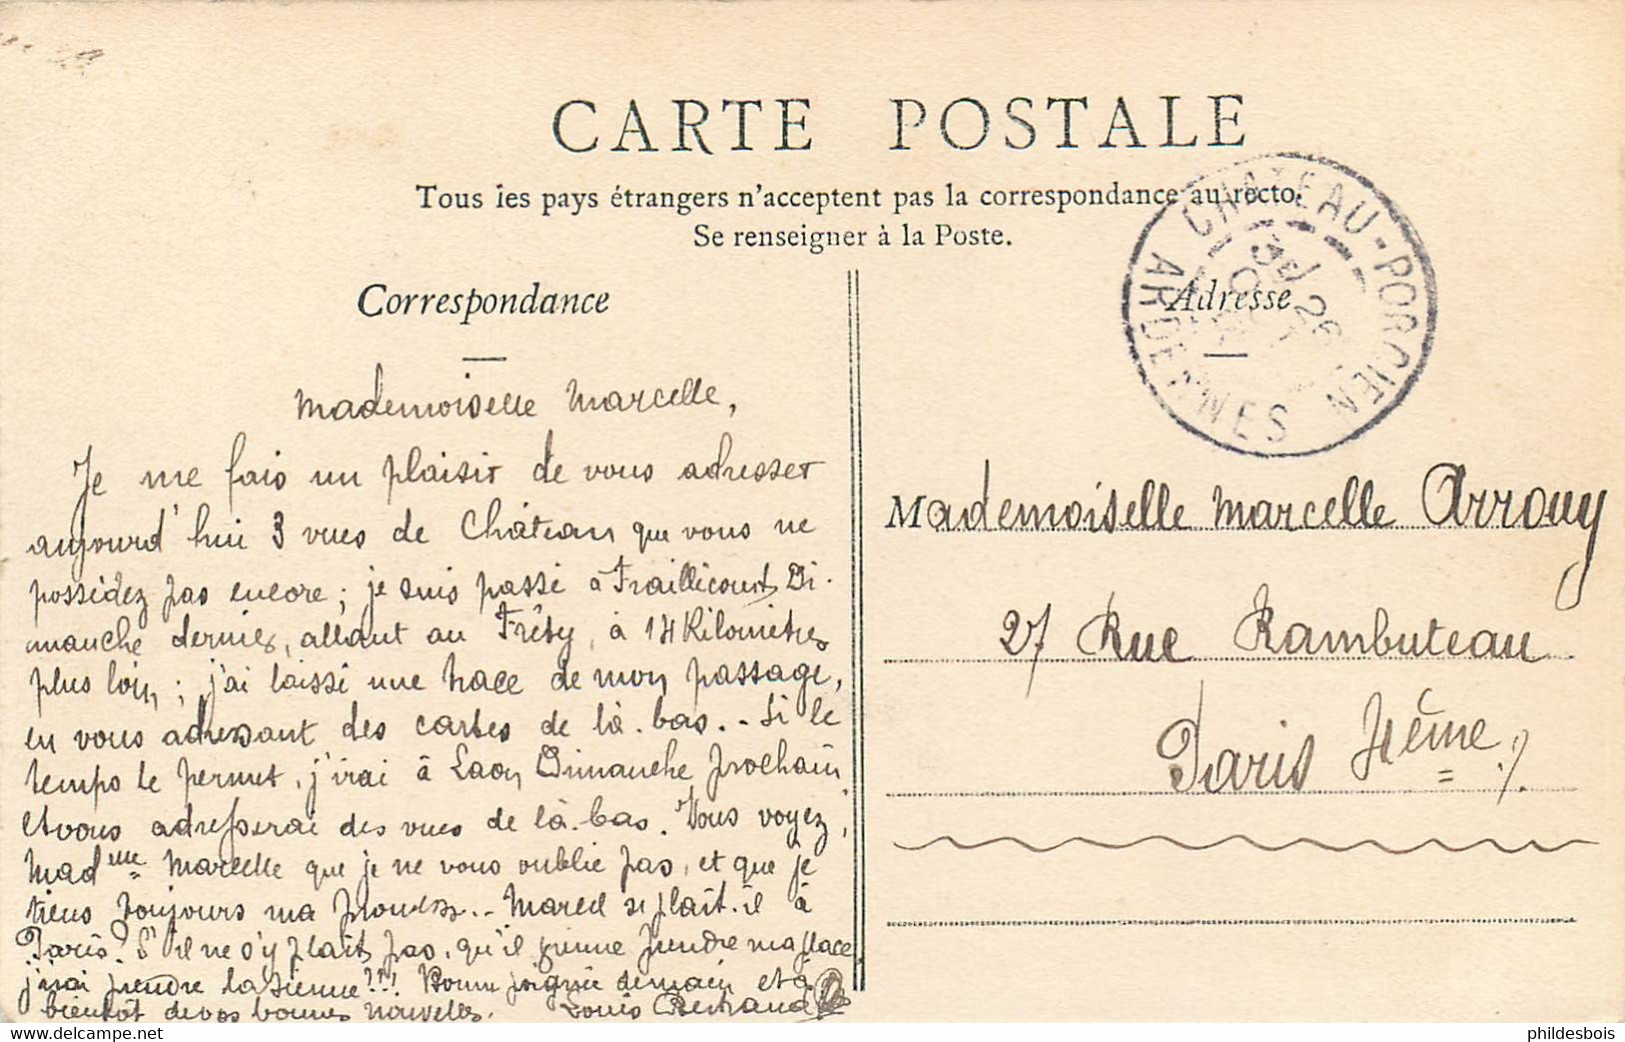 CARTE POSTALE
Tous les pays étrangers n'acceptent pas la correspondance au recto.
Se renseigner à la Poste.
CHATEAU-PORCIEN
ARDENNES
26
Correspondance
Adresse
Mademoiselle Marcelle,
Je me fais un plaisir de vous adresser
aujourd'hui 3 vues de Château que vous ne
possédez pas encore; je suis passé à Fraillicourt Di-
manche dernier, allant au Fréty, à 14 Kilomètres
plus loin; j'ai laissé une trace de mon passage,
en vous adressant des cartes de là-bas. - Si le
temps le permet, j'irai à Laon Dimanche prochain
et vous adresserai des vues de là-bas. Vous voyez,
Mad elle Marcelle que je ne vous oublie pas, et que je
tiens toujours ma promesse.. Marcel se plaît-il à
Paris? S'il ne s'y plaît pas, qu'il vienne prendre ma place,
j'irai prendre la sienne!!! Bonne poignée de main et à
bientôt de vos bonnes nouvelles. Louis Bertrand
Mademoiselle Marcelle Arrouy
27 Rue Rambuteau
Paris 4ème
phildesbois